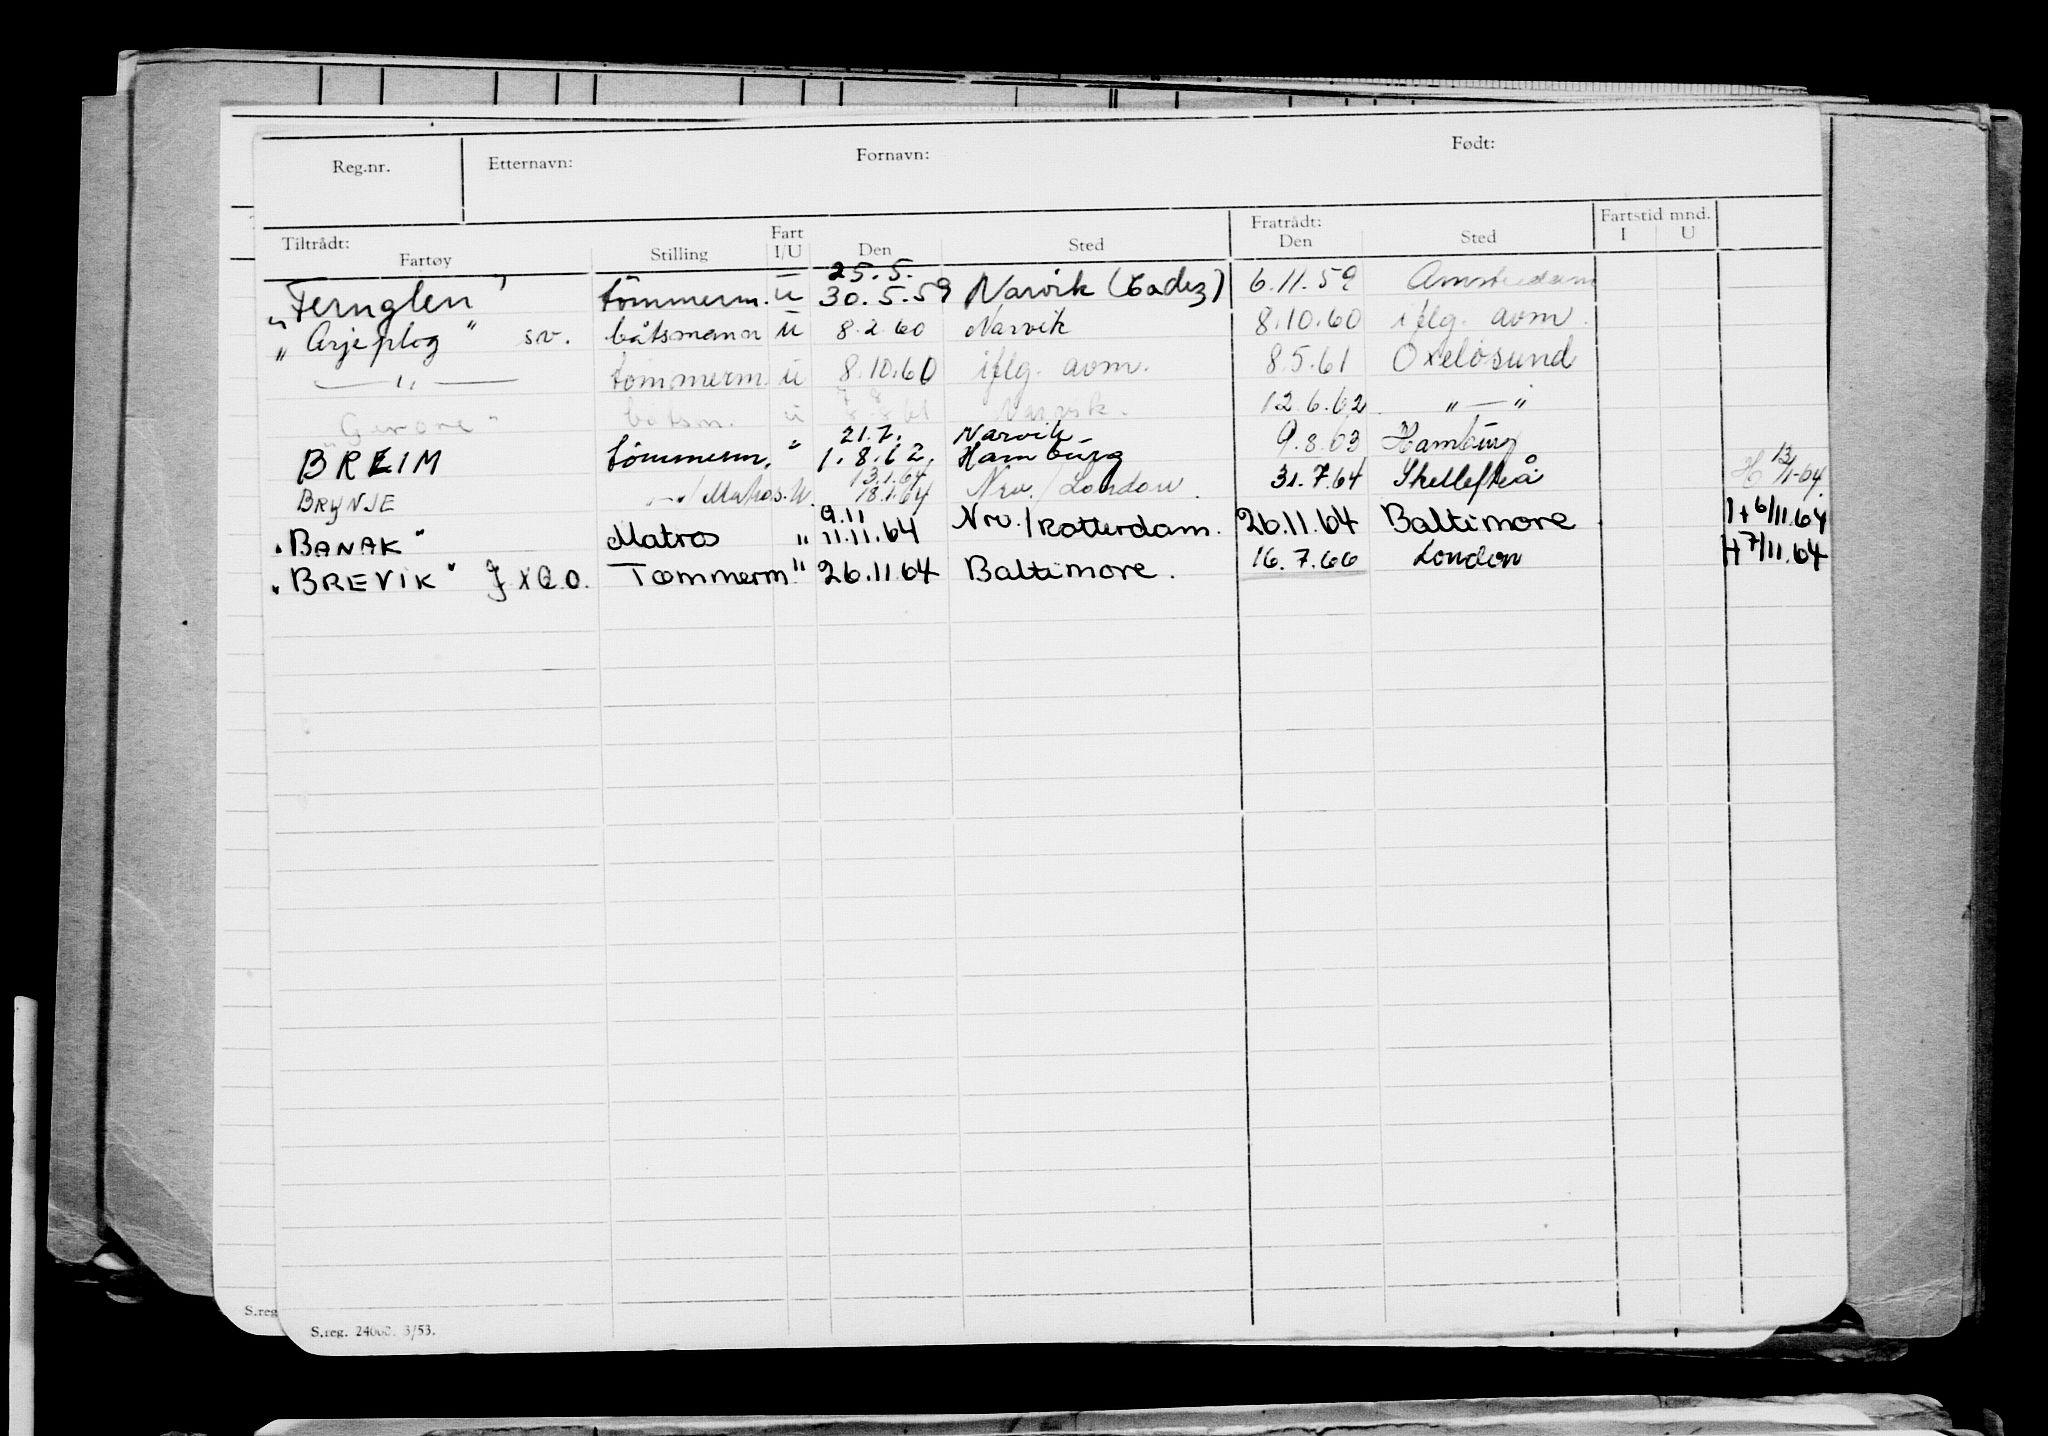 Reg.nr. Etternavn: Fornavn: Født:
Tiltrådt: Fartøy Stilling Fart I/U Den Sted Fratrådt: Den Sted Fartstid mnd. I U
25.5.
"Fernglen" tömmerm. u 30.5.59 Narvik (Cadiz) 6.11.59 Amsterdam
"Arjeplog" sv. båtsmann u 8.2.60 Narvik 8.10.60 iflg. avm.
— " — tömmerm. u 8.10.60 iflg. avm. 8.5.61 Oxelösund
båtsm. u Narvik. 12.6.62 " — "
21.7. Narvik
BREIM tömmerm. " 1.8.62. Hamburg 9.3.63 Hamburg
13.1.64 13/1-64.
BRYNJE Matros. U. 18.1.64 Nrv. / London. 31.7.64 Skellefteå H
9.11
"BANAK" Matros " 11.11.64 Nrv. / Rotterdam. 26.11.64 Baltimore 6/11.64
"BREVIK" JXQO. Tømmerm. " 26.11.64 Baltimore. 16.7.66 London H 7/11.64
S.reg
S.reg. 24000. 3/53.